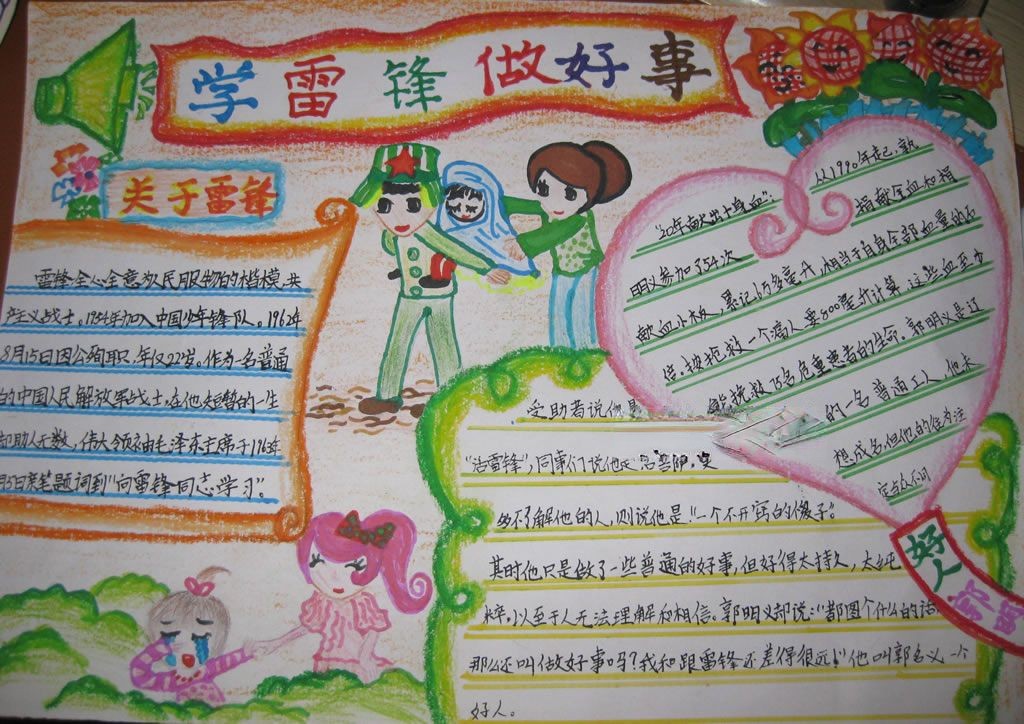 学雷锋做好事
关于雷锋
雷锋全心全意为人民服务的楷模,共
产主义战士。1954年加入中国少年先锋队。1962年
8月15日因公殉职,年仅22岁。作为一名普通
的中国人民解放军战士,在他短暂的一生
却助人无数,伟大领袖毛泽东主席于1963年
月5日亲笔题词到“向雷锋同志学习”。
“20年献出十身血”:
从1990年起,郭
明义参加了54次
捐献全血和捐
献血小板,累记6万多毫升,相当于自身全部血量的
倍。按抢救一个病人要800毫升计算,这些血至少
能挽救75名危重患者的生命。郭明义是辽
的一名普通工人,他未
想成名,但他的
好人
受助者说他是
“活雷锋”,同事们说他
多不了解他的人,则说他是“一个不开窍的傻子”。
其时他只是做了一些普通的好事,但好得太持久,太纯
粹,以至于人无法理解和相信。郭明义却说:“都图个什么的话
那么还叫做好事吗?我和跟雷锋还差得很远!”他叫郭名义 一个
好人。